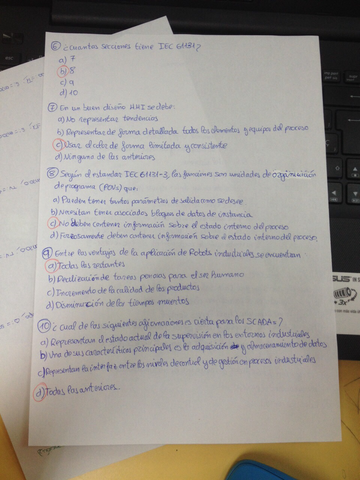 ⑥ ¿Cuantas secciones tiene IEC 61131?
a) 7
b) 8
c) 9
d) 10
⑦ En un buen diseño HMI se debe:
a) No representar tendencias
b) Representar de forma detallada todos los elementos y equipos del proceso
c) Usar el color de forma limitada y consistente
d) Ninguna de las anteriores
⑧ Según el estandar IEC 61131-3, las funciones son unidades de organización
de programa (POUs) que:
a) Pueden tener tantos parámetros de salida como se desee
b) necesitan tener asociados bloques de datos de instancia
c) No deben contener información sobre el estado interno del proceso
d) Forzosamente deben contener información sobre el estado interno del proceso.
⑨ Entre las ventajas de la aplicación de Robots industriales se encuentran
a) Todas las restantes
b) Realización de tareas penosas para el ser humano
c) Incremento de la calidad de los productos
d) Disminución de los tiempos muertos.
⑩ ¿Cual de las siguientes afirmaciones es cierta para los SCADAs?
a) Representan el estado actual de la supervisión en los entornos industriales
b) Una de sus características principales es la adquisición y almacenamiento de datos
c) Representan la interfaz entre los niveles de control y de gestión en procesos industriales
d) Todas las anteriores.
SUS